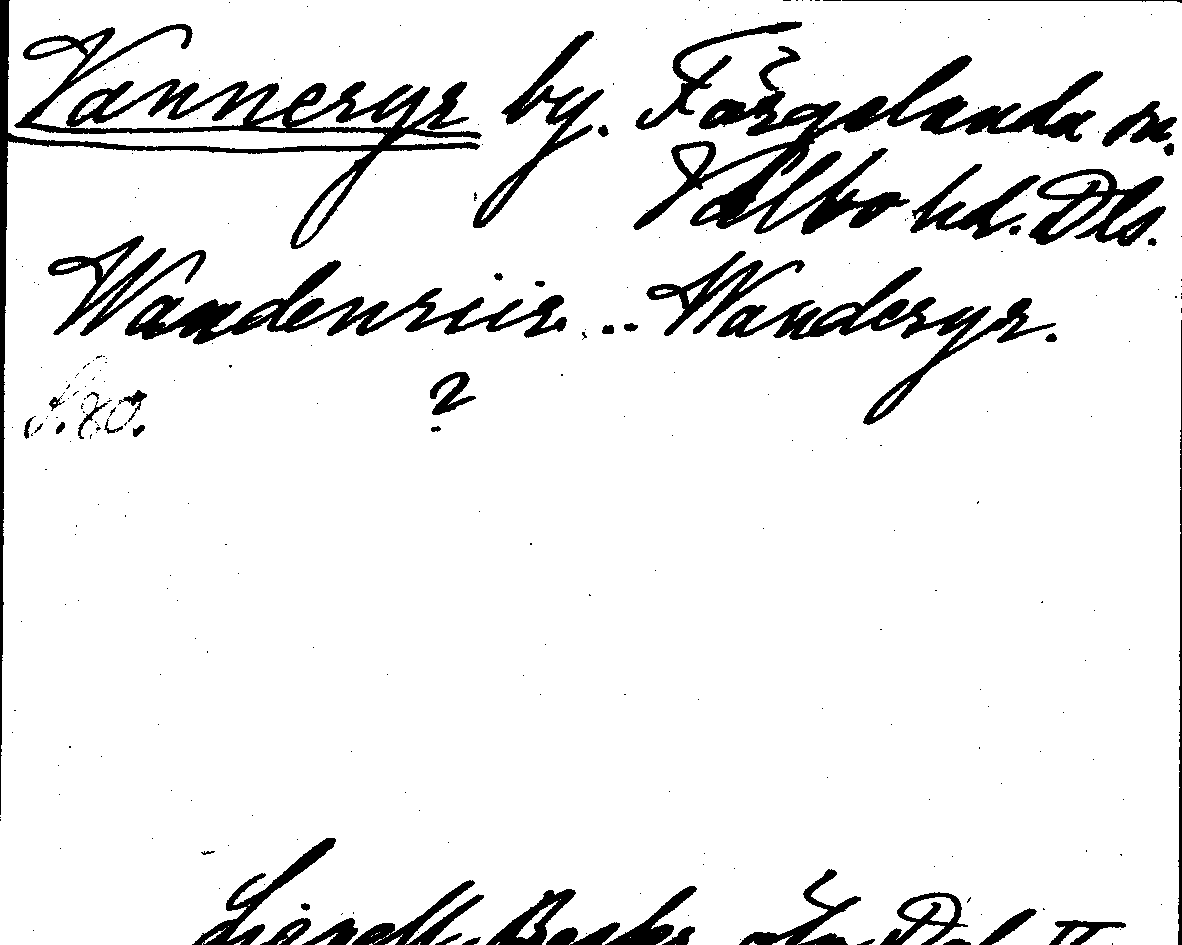 Vanneryr by. Färgelanda sn.
Valbo hd. Dls.
Wandenriir... Wanderyr.
S. 80. ?
Lignell, Beskr. öfv. Dal II